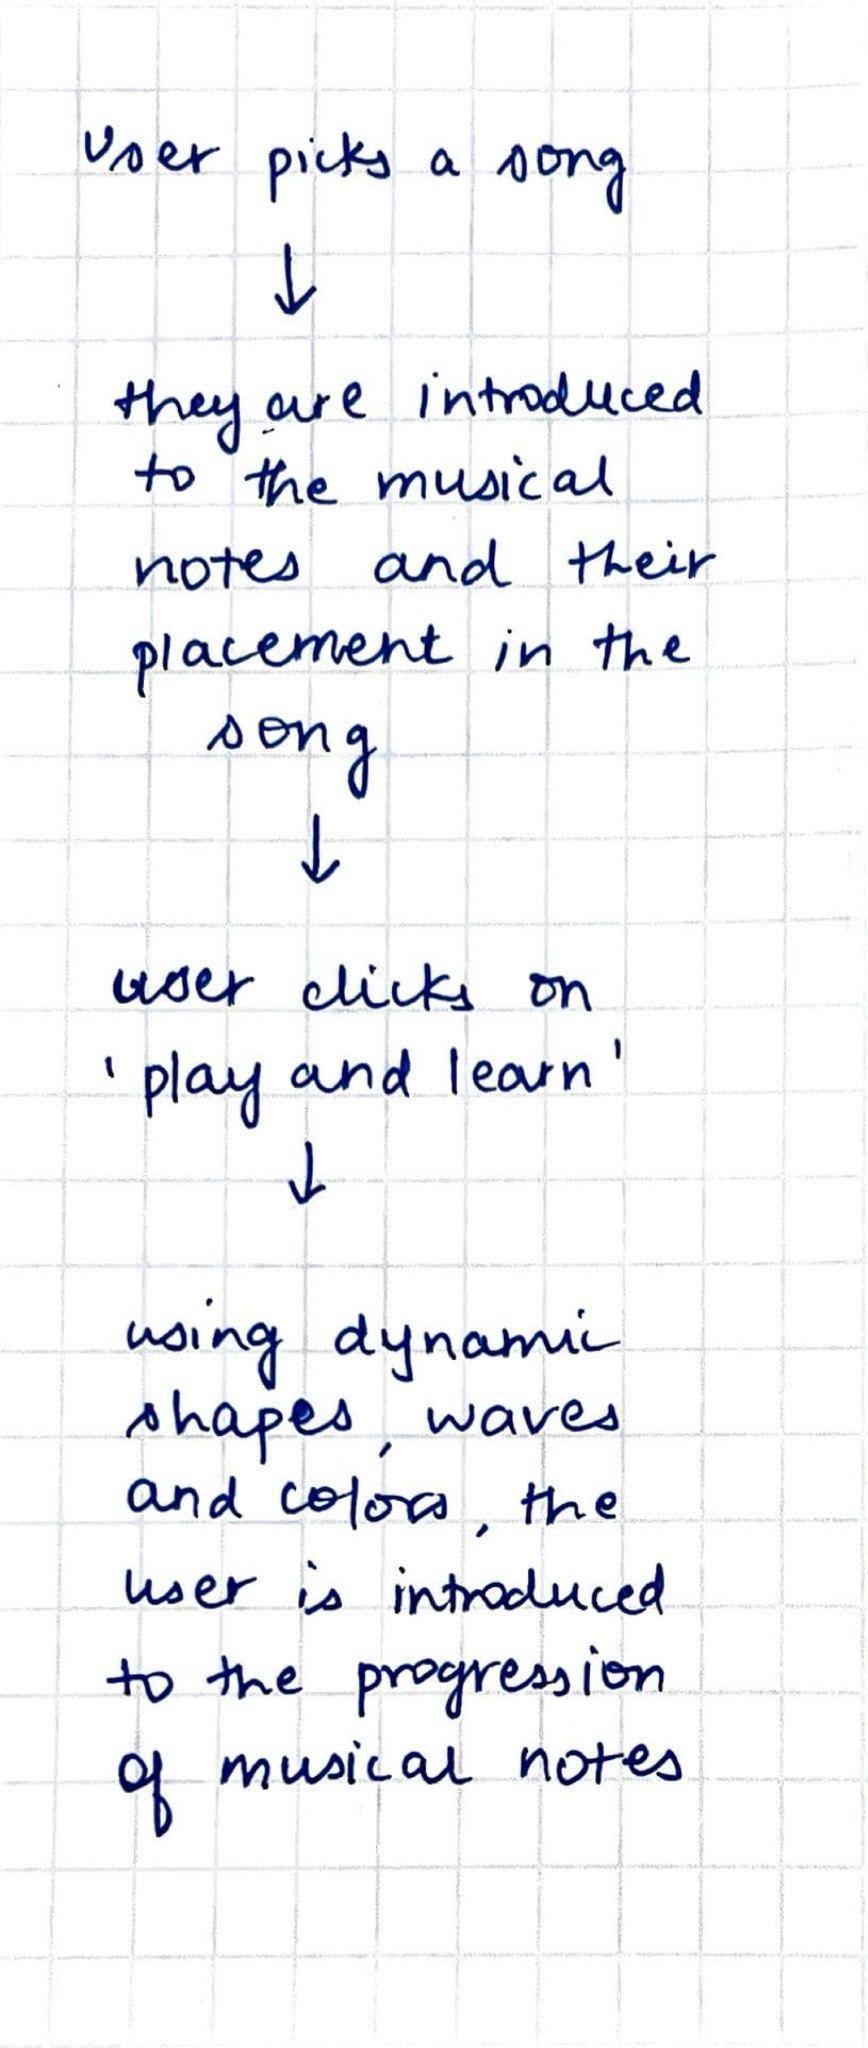 user picks a song
↓
they are introduced
to the musical
notes and their
placement in the
song
↓
user clicks on
'play and learn'
↓
using dynamic
shapes, waves
and colors, the
user is introduced
to the progression
of musical notes